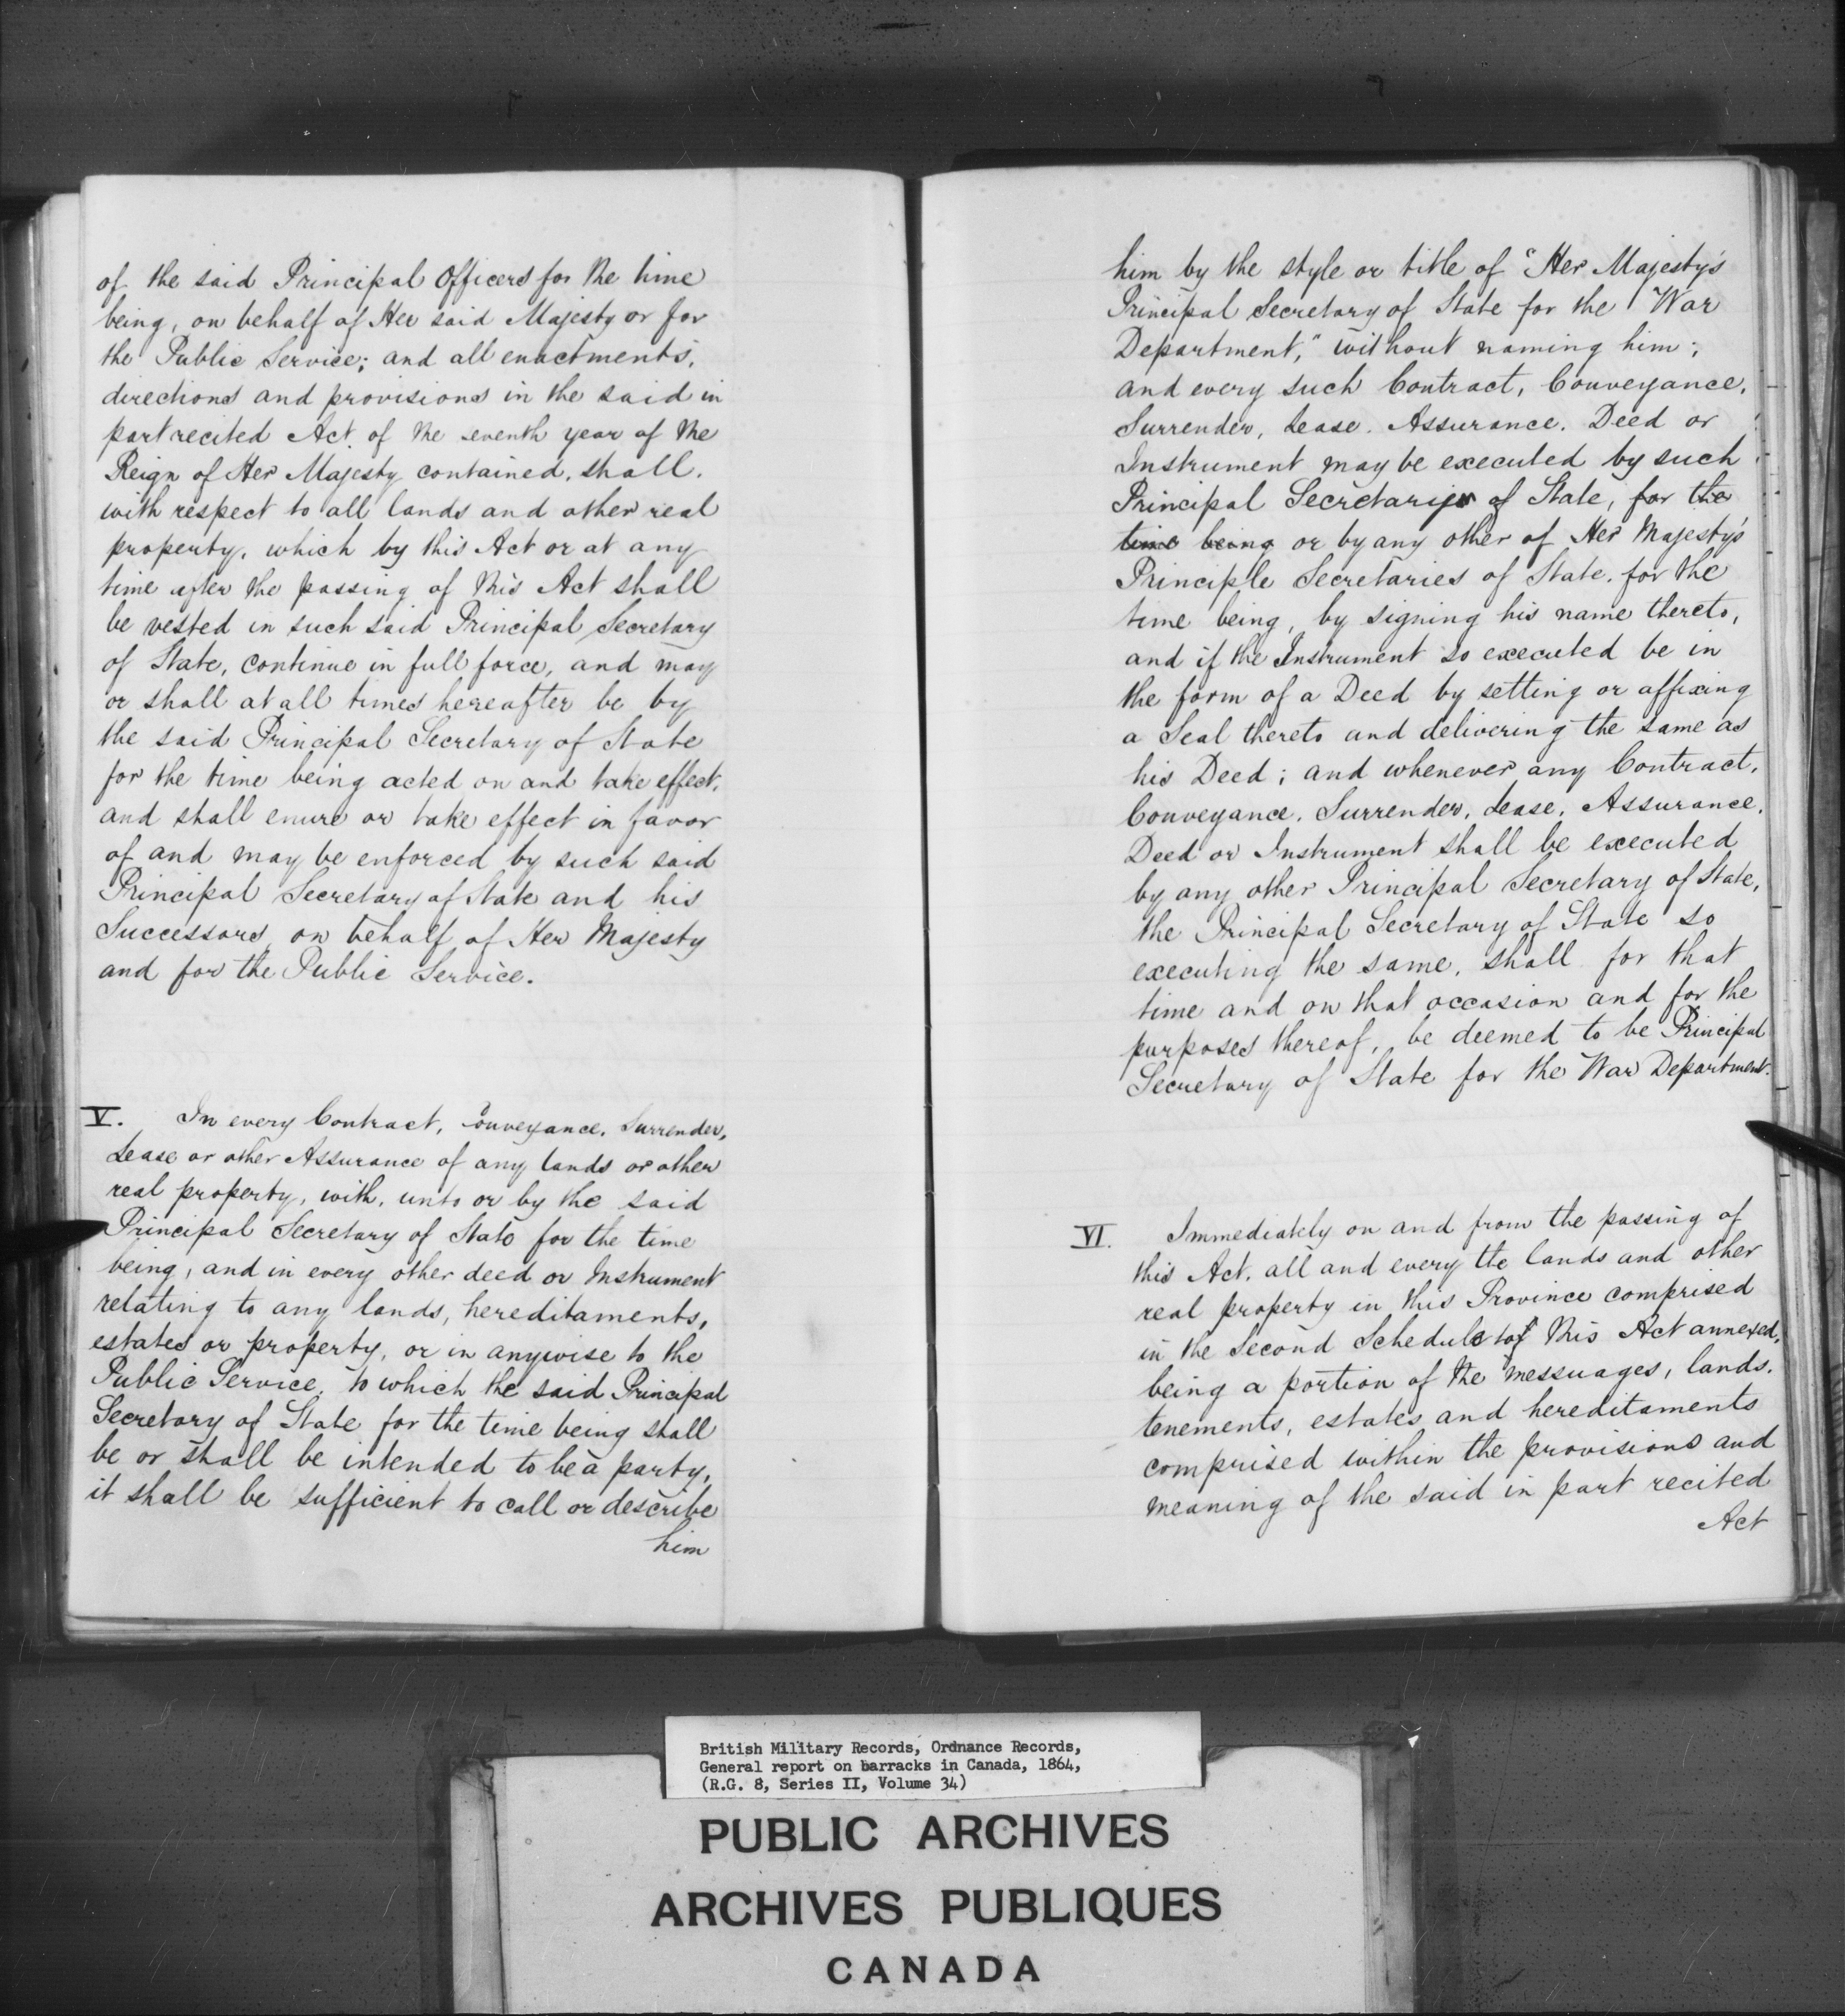 of the said Principal Officers for the time
being, on behalf of Her said Majesty or for
the Public Service; and all enactments,
directions and provisions in the said in
part recited Act. of the seventh year of the
Reign of Her Majesty contained, shall,
with respect to all lands and other real
property, which by this Act or at any
time after the passing of this Act shall
be vested in such said Principal Secretary
of State, continue in full force, and may
or shall at all times hereafter be by
the said Principal Secretary of State
for the time being acted on and take effect,
and shall enure or take effect in favor
of and may be enforced by such said
Principal Secretary of State and his
Successors on behalf of Her Majesty
and for the Public Service.
V. In every Contract, Conveyance, Surrender,
Lease or other Assurance of any lands or other
real property, with, unto or by the said
Principal Secretary of State for the time
being, and in every other deed or Instrument
relating to any lands, hereditaments,
estates or property, or in anywise to the
Public Service, to which the said Principal
Secretary of State for the time being shall
be or shall be intended to be a party,
it shall be sufficient to call or describe
him
him by the style or title of "Her Majesty's
Principal Secretary of State for the War
Department," without naming him;
and every such Contract, Conveyance,
Surrender, Lease. Assurance. Deed or
Instrument may be executed by such
Principal Secretary of State, for the
time being or by any other of Her Majesty's
Principle Secretaries of State. for the
time being, by signing his name thereto,
and if the Instrument so executed be in
the form of a Deed by setting or affixing
a Seal thereto and delivering the same as
his Deed; and whenever any Contract,
Conveyance. Surrender, Lease, Assurance,
Deed or Instrument shall be executed
by any other Principal Secretary of State,
the Principal Secretary of State so
executing the same, shall for that
time and on that occasion and for the
purposes thereof, be deemed to be Principal
Secretary of State for the War Department.
VI. Immediately on and from the passing of
this Act, all and every the lands and other
real property in this Province comprised
in the Second Schedule to this Act annexed,
being a portion of the messuages, lands,
tenements, estates and hereditaments
comprised within the provisions and
meaning of the said in part recited
Act
British Military Records, Ordnance Records,
General report on barracks in Canada, 1864,
(R.G. 8, Series II, Volume 34)
PUBLIC ARCHIVES
ARCHIVES PUBLIQUES
CANADA